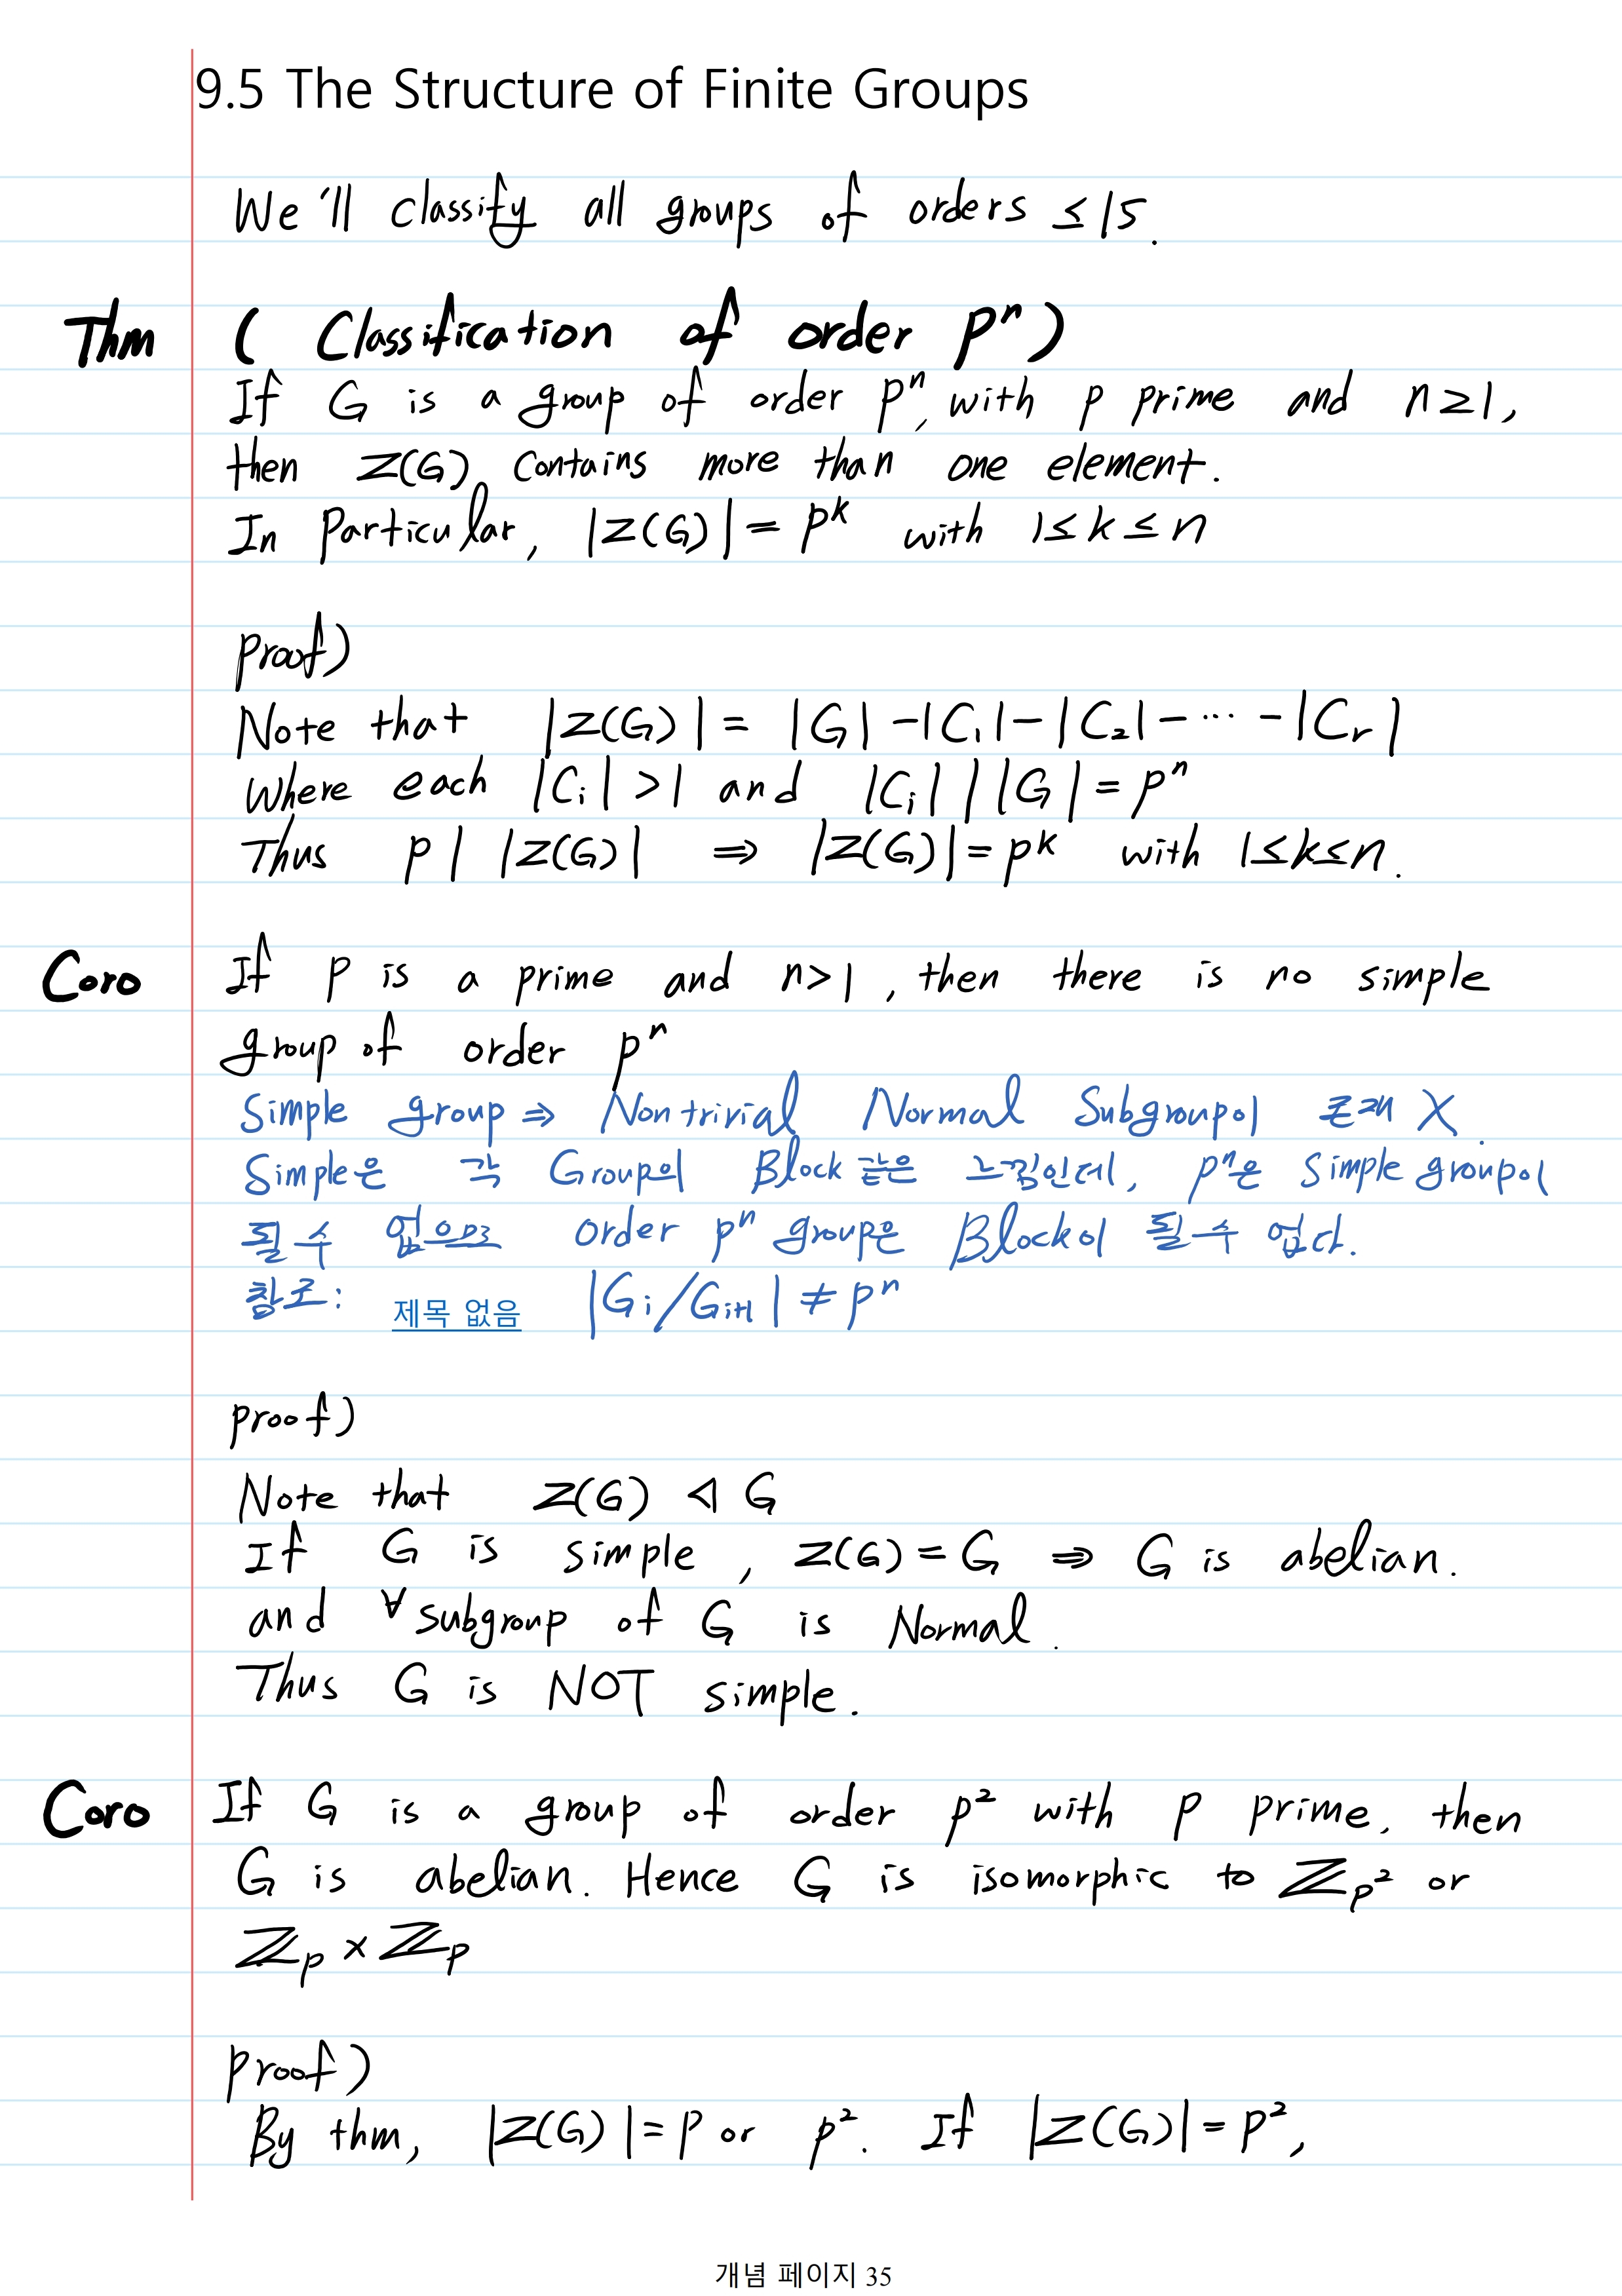 9.5 The Structure of Finite Groups
We'll classify all groups of orders ≤ 15.
Thm ( Classification of order pⁿ )
If G is a group of order pⁿ, with p prime and n≥1,
then Z(G) contains more than one element.
In particular, |Z(G)| = pᵏ with 1≤k≤n
proof)
Note that |Z(G)| = |G| -|C₁|-|C₂|-⋯-|Cᵣ|
Where each |Cᵢ|>1 and |Cᵢ| | |G| = pⁿ
Thus p | |Z(G)| ⇒ |Z(G)|=pᵏ with 1≤k≤n.
Coro If p is a prime and n>1, then there is no simple
group of order pⁿ
Simple group ⇒ Nontrivial Normal Subgroup이 존재 X.
Simple은 각 Group의 Block 같은 느낌인데, pⁿ은 Simple group이
될 수 없으므로 order pⁿ group은 Block이 될 수 없다.
참고: 제목 없음 |Gᵢ/Gᵢ₊₁| ≠ pⁿ
proof)
Note that Z(G) ⊲ G
If G is simple, Z(G)=G ⇒ G is abelian.
and ∀subgroup of G is Normal.
Thus G is NOT simple.
Coro If G is a group of order p² with p prime, then
G is abelian. Hence G is isomorphic to ℤ_p² or
ℤ_p × ℤ_p
proof)
By thm, |Z(G)|=p or p². If |Z(G)|=p²,
개념 페이지 35